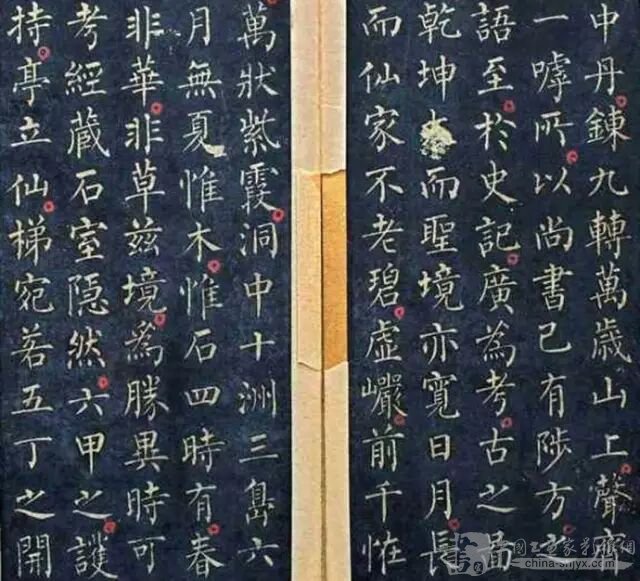 中丹鍊九轉萬歲山上聲齊
一嘑所以尚書已有陟方之
語至於史記廣為考古之
乾坤而聖境亦寬日月長
而仙家不老碧虛巗前千恠
萬狀紫霞洞中十洲三島六
月無夏惟木惟石四時有春
非華非草茲境為勝異時可
考經藏石室隱然六甲之護
持亭立仙梯宛若五丁之開
www.china-shjyx.com